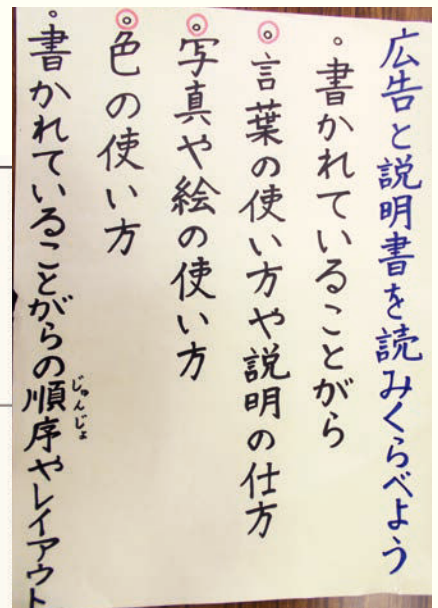 広告と説明書を読みくらべよう
。書かれていることがら
。言葉の使い方や説明の仕方
。写真や絵の使い方
。色の使い方
。書かれていることがらの順序やレイアウト
じゅんじょ